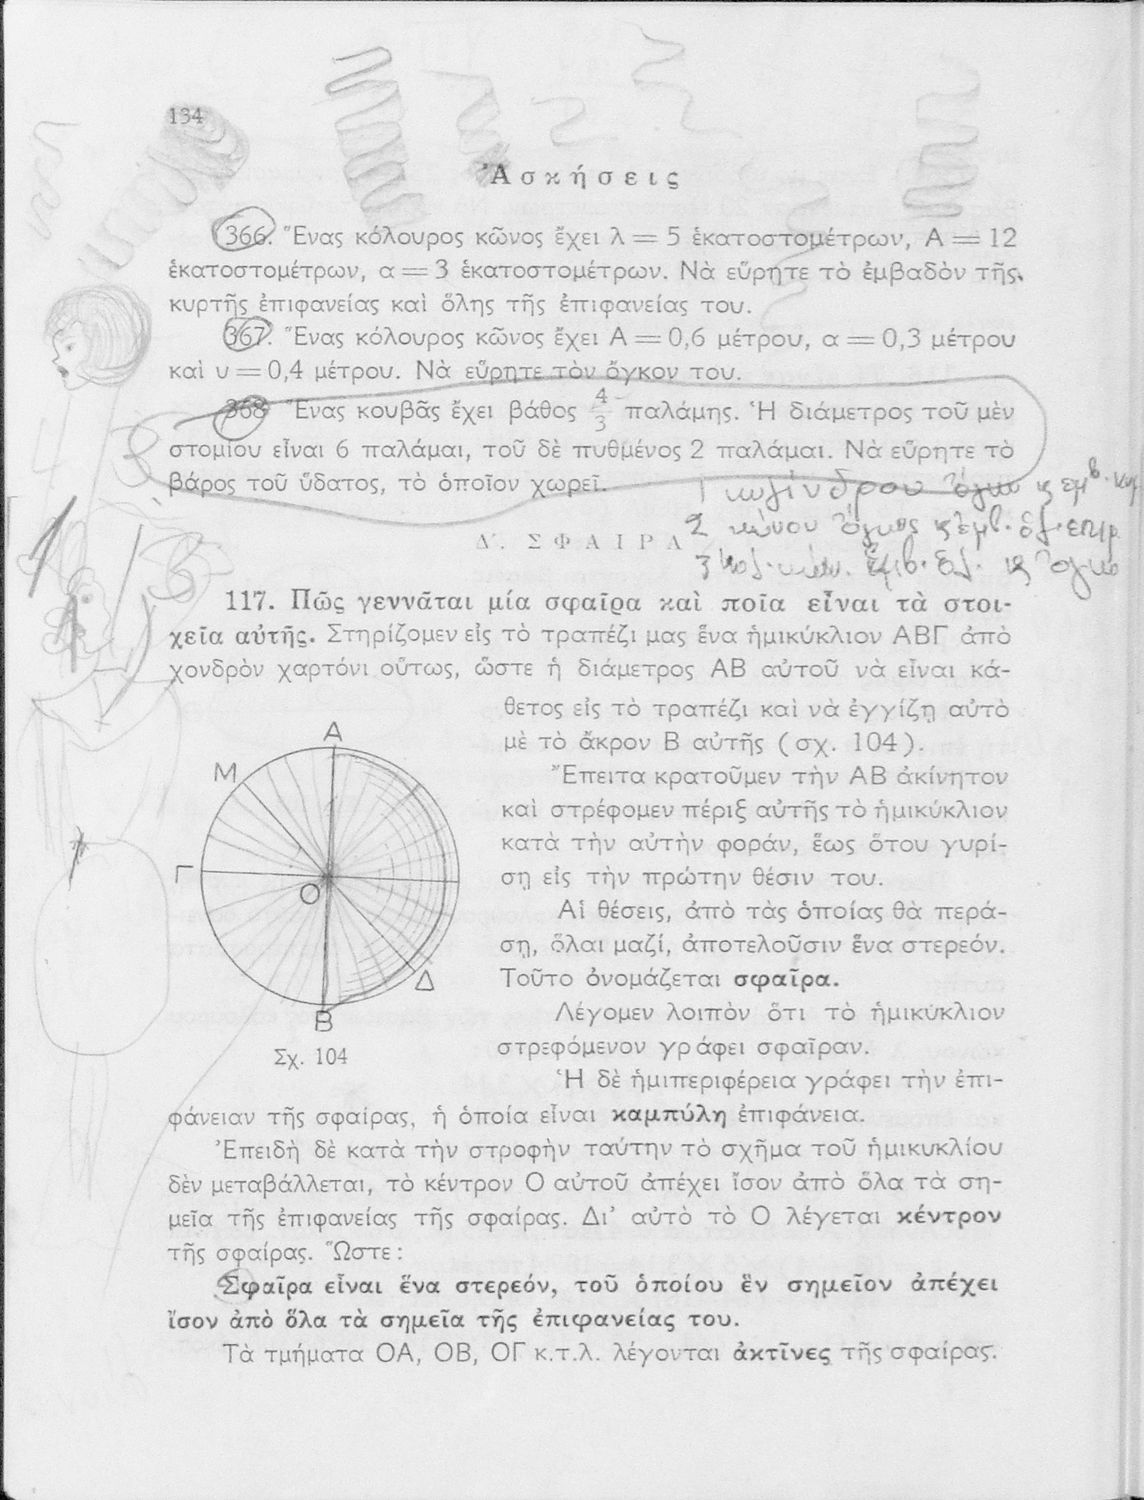 134
Ἀσκήσεις
366. Ἕνας κόλουρος κῶνος ἔχει λ = 5 ἑκατοστομέτρων, Α = 12
ἑκατοστομέτρων, α = 3 ἑκατοστομέτρων. Νὰ εὕρητε τὸ ἐμβαδὸν τῆς
κυρτῆς ἐπιφανείας καὶ ὅλης τῆς ἐπιφανείας του.
367. Ἕνας κόλουρος κῶνος ἔχει Α = 0,6 μέτρου, α = 0,3 μέτρου
καὶ υ = 0,4 μέτρου. Νὰ εὕρητε τὸν ὄγκον του.
368 Ἕνας κουβᾶς ἔχει βάθος 4/3 παλάμης. Ἡ διάμετρος τοῦ μὲν
στομίου εἶναι 6 παλάμαι, τοῦ δὲ πυθμένος 2 παλάμαι. Νὰ εὕρητε τὸ
βάρος τοῦ ὕδατος, τὸ ὁποῖον χωρεῖ.
1 κυλίνδρου ὄγκο κ εμβ.
2 κώνου ὄγκος κ ἐμβ. ὁλ. επιφ
3 Κολ. κών. Ἐμβ. ὁλ. κ ὄγκο
Δ΄. ΣΦΑΙΡΑ
117. Πῶς γεννᾶται μία σφαῖρα καὶ ποῖα εἶναι τὰ στοι-
χεῖα αὐτῆς. Στηρίζομεν εἰς τὸ τραπέζι μας ἕνα ἡμικύκλιον ΑΒΓ ἀπὸ
χονδρὸν χαρτόνι οὕτως, ὥστε ἡ διάμετρος ΑΒ αὐτοῦ νὰ εἶναι κά-
θετος εἰς τὸ τραπέζι καὶ νὰ ἐγγίζῃ αὐτὸ
μὲ τὸ ἄκρον Β αὐτῆς (σχ. 104).
Ἔπειτα κρατοῦμεν τὴν ΑΒ ἀκίνητον
καὶ στρέφομεν πέριξ αὐτῆς τὸ ἡμικύκλιον
κατὰ τὴν αὐτὴν φοράν, ἕως ὅτου γυρί-
σῃ εἰς τὴν πρώτην θέσιν του.
Αἱ θέσεις, ἀπὸ τὰς ὁποίας θὰ περά-
σῃ, ὅλαι μαζί, ἀποτελοῦσιν ἕνα στερεόν.
Τοῦτο ὀνομάζεται σφαῖρα.
Λέγομεν λοιπὸν ὅτι τὸ ἡμικύκλιον
στρεφόμενον γράφει σφαῖραν.
Ἡ δὲ ἡμιπεριφέρεια γράφει τὴν ἐπι-
Α
Μ
Γ
Ο
Δ
Β
Σχ. 104
φάνειαν τῆς σφαίρας, ἡ ὁποία εἶναι καμπύλη ἐπιφάνεια.
Ἐπειδὴ δὲ κατὰ τὴν στροφὴν ταύτην τὸ σχῆμα τοῦ ἡμικυκλίου
δὲν μεταβάλλεται, τὸ κέντρον Ο αὐτοῦ ἀπέχει ἴσον ἀπὸ ὅλα τὰ ση-
μεῖα τῆς ἐπιφανείας τῆς σφαίρας. Δι' αὐτὸ τὸ Ο λέγεται κέντρον
τῆς σφαίρας. Ὥστε :
Σφαῖρα εἶναι ἕνα στερεόν, τοῦ ὁποίου ἓν σημεῖον ἀπέχει
ἴσον ἀπὸ ὅλα τὰ σημεῖα τῆς ἐπιφανείας του.
Τὰ τμήματα ΟΑ, ΟΒ, ΟΓ κ.τ.λ. λέγονται ἀκτῖνες τῆς σφαίρας.